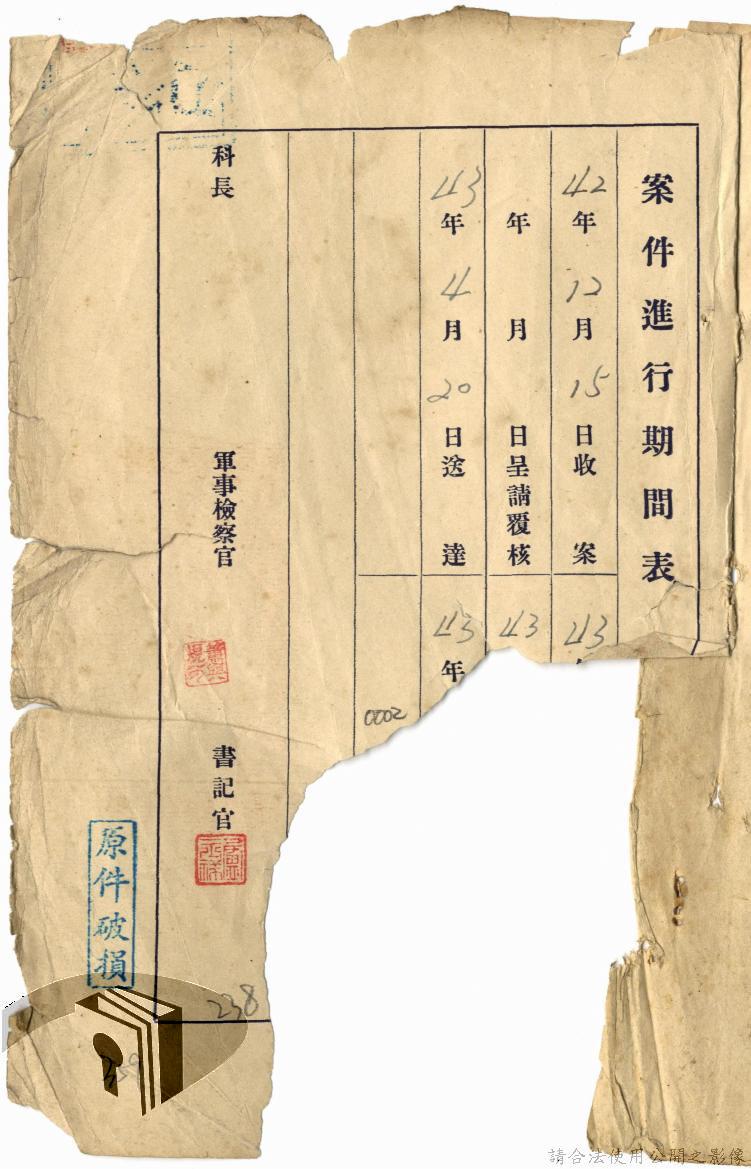 案件進行期間表
42年12月15日收案
43
年月日呈請覆核
43
43年4月20日送達
43年
0002
科長
軍事檢察官
書記官
原件破損
238
請合法使用公開之影像